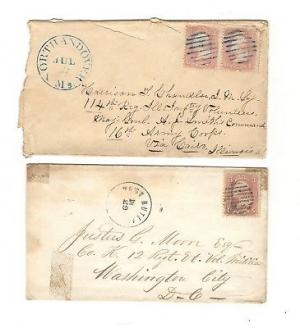 NORTH ANDOVER
JUL
Ms
Harrison T. Chandler Q. M. Sg.
114th Reg. Ills. Inf. of Volunteers
Maj. Genl. A. J. Smith's Command
16th Army Corps
Via Cairo,
Illinois
WEST BUTLER
29
Justus G. Moon Esq
Co. K. 12 Regt. Vol.
Washington City
D-C-